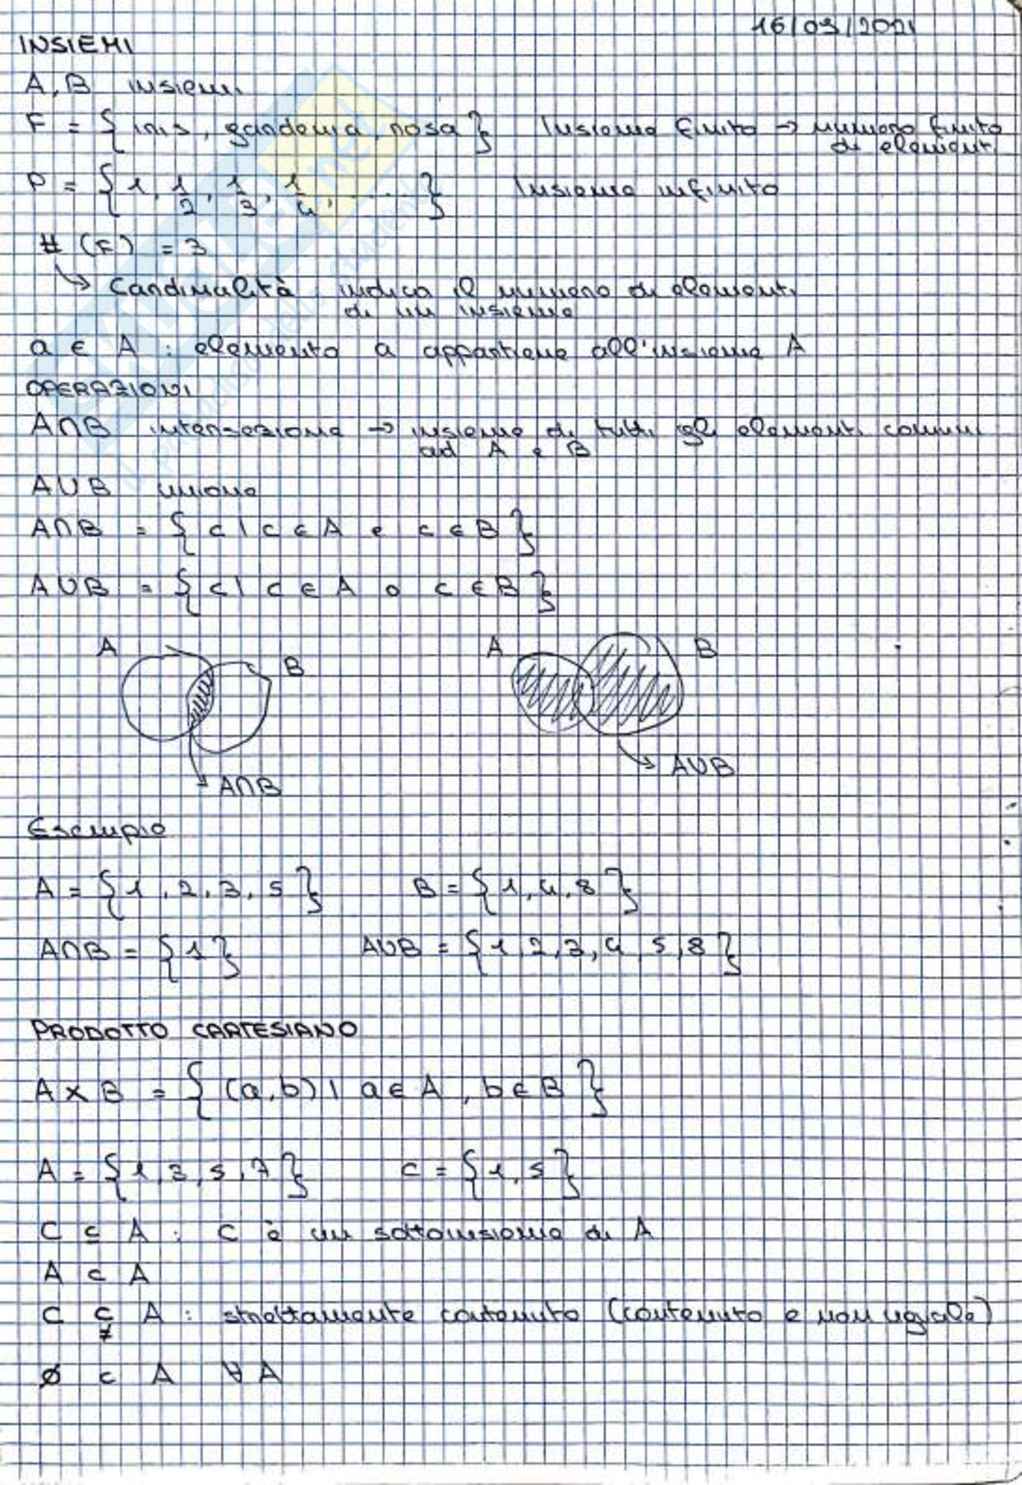 16/03/2021
INSIEMI
A, B insiemi
F = { iris, gardenia, rosa } Insieme finito → numero finito
di elementi
P = { 1, 1/2, 1/3, 1/4, .... } Insieme infinito
# (F) = 3
↳ Cardinalità: indica il numero di elementi
di un insieme
a ∈ A : elemento a appartiene all'insieme A
OPERAZIONI
A∩B intersezione → insieme di tutti gli elementi comuni
ad A e B
A∪B unione
A∩B = { c | c ∈ A e c ∈ B }
A∪B = { c | c ∈ A o c ∈ B }
A B A B
A∩B A∪B
Esempio
A = { 1, 2, 3, 5 } B = { 1, 4, 8 }
A∩B = { 1 } A∪B = { 1, 2, 3, 4, 5, 8 }
PRODOTTO CARTESIANO
A × B = { (a, b) | a ∈ A, b ∈ B }
A = { 1, 3, 5, 7 } C = { 1, 5 }
C ⊆ A : C è un sottoinsieme di A
A ⊂ A
C ⊊ A : strettamente contenuto (contenuto e non uguale)
∅ ⊂ A ∀ A